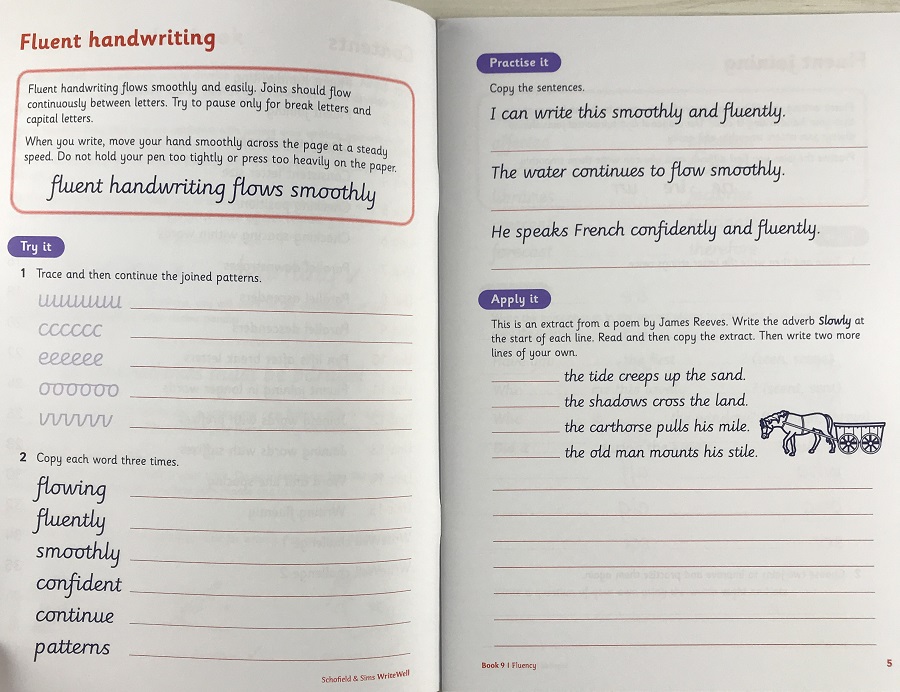 Fluent handwriting
Fluent handwriting flows smoothly and easily. Joins should flow
continuously between letters. Try to pause only for break letters and
capital letters.
When you write, move your hand smoothly across the page at a steady
speed. Do not hold your pen too tightly or press too heavily on the paper.
fluent handwriting flows smoothly
Try it
1 Trace and then continue the joined patterns.
uuuuuuu
cccccc
eeeeee
oooooo
vvvvvv
2 Copy each word three times.
flowing
fluently
smoothly
confident
continue
patterns
Schofield & Sims WriteWell
Practise it
Copy the sentences.
I can write this smoothly and fluently.
The water continues to flow smoothly.
He speaks French confidently and fluently.
Apply it
This is an extract from a poem by James Reeves. Write the adverb Slowly at
the start of each line. Read and then copy the extract. Then write two more
lines of your own.
the tide creeps up the sand.
the shadows cross the land.
the carthorse pulls his mile.
the old man mounts his stile.
Book 9 | Fluency
5